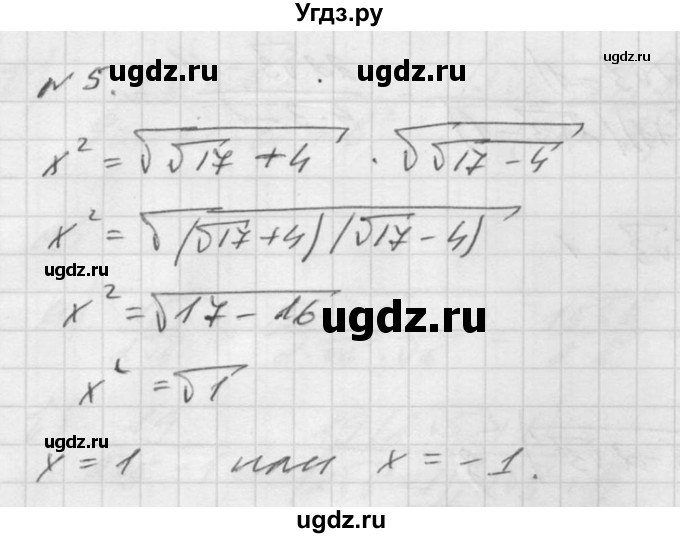 Угдз.ру
ugdz.ru
№5. ugdz.ru ugdz.ru
x² = √(√17 + 4) · √(√17 - 4)
x² = √((√17 + 4)(√17 - 4))
ugdz.ru
x² = √(17 - 16)
ugdz.ru
x² = √1
ugdz.ru
x = 1 или x = -1.
ugdz.ru
ugdz.ru